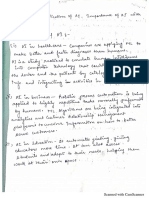 Application of AI. Importance of AI with
of AI :-
AI in healthcare - Companies are applying ML to
make better and faster diagnoses than humans.
AI is a study modelled to emulate human intelligence
into computer technology that could assist both
the doctor and the patients by
info. and integrating in activities
AI in business - Robotic process automation is being
applied to highly repetitive tasks normally performed
by humans. ML Algorithms are being integrated into
analytics and Customer Relationship management
platform to uncover Information on how to better
serve customers.
AI in Education :- It automates grading, giving
educators more time. It can also assess
students and adapt to their needs, helping them
work at their own pace.
Scanned with CamScanner